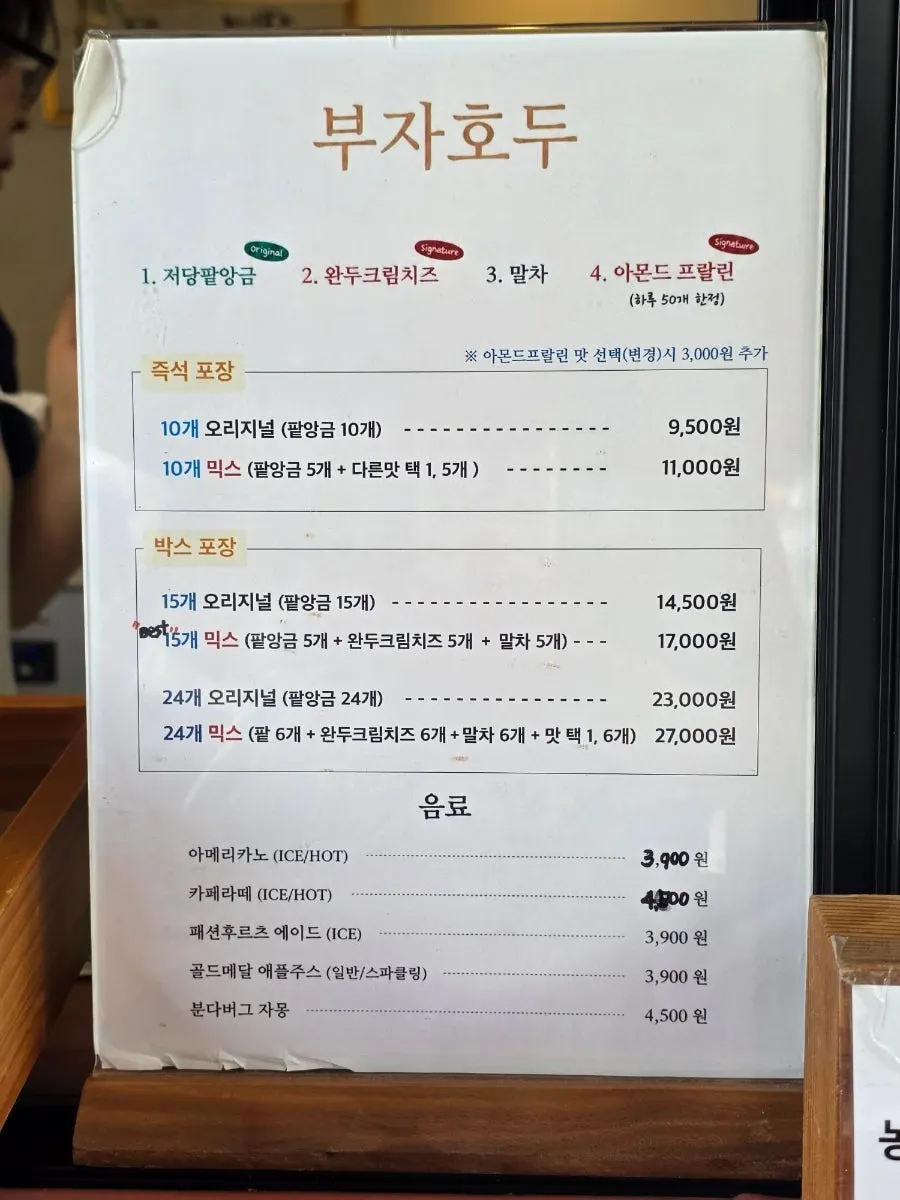 부자호두
Original
Signature
Signature
1. 저당팥앙금 2. 완두크림치즈 3. 말차 4. 아몬드 프랄린
(하루 50개 한정)
※ 아몬드프랄린 맛 선택(변경)시 3,000원 추가
즉석 포장
10개 오리지널 (팥앙금 10개) ---------------- 9,500원
10개 믹스 (팥앙금 5개 + 다른맛 택 1, 5개 ) -------- 11,000원
박스 포장
15개 오리지널 (팥앙금 15개) ----------------- 14,500원
"Best"
15개 믹스 (팥앙금 5개 + 완두크림치즈 5개 + 말차 5개) --- 17,000원
24개 오리지널 (팥앙금 24개) ---------------- 23,000원
24개 믹스 (팥 6개 + 완두크림치즈 6개 + 말차 6개 + 맛 택 1, 6개) 27,000원
음료
아메리카노 (ICE/HOT) 3,900 원
카페라떼 (ICE/HOT) 원
패션후르츠 에이드 (ICE) 3,900 원
골드메달 애플주스 (일반/스파클링) 3,900 원
분다버그 자몽 4,500 원
농